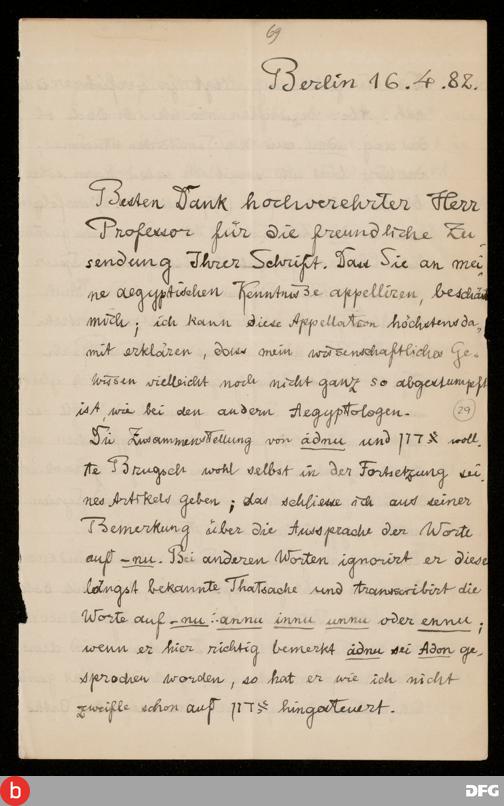 69
Berlin 16.4.82.
Besten Dank hochverehrter Herr
Professor für die freundliche Zu-
sendung Ihrer Schrift. Dass Sie an mei-
ne aegyptischen Kenntnisse appelliren, beschämt
mich; ich kann diese Appellation höchstens da-
mit erklären, dass mein wissenschaftliches Ge-
wissen vielleicht noch nicht ganz so abgestumpft
ist, wie bei den andern Aegyptologen.
(29)
Die Zusammenstellung von ädnu und אדון woll-
te Brugsch wohl selbst in der Fortsetzung sei-
nes Artikels geben; das schliesse ich aus seiner
Bemerkung über die Aussprache der Worte
auf -nu. Bei anderen Worten ignorirt er diese
längst bekannte Thatsache und transcribirt die
Worte auf -nu: annu innu unnu oder ennu;
wenn er hier richtig bemerkt ädnu sei Adon ge-
sprochen worden, so hat er wie ich nicht
zweifle schon auf אדון hingesteuert.
b
DFG